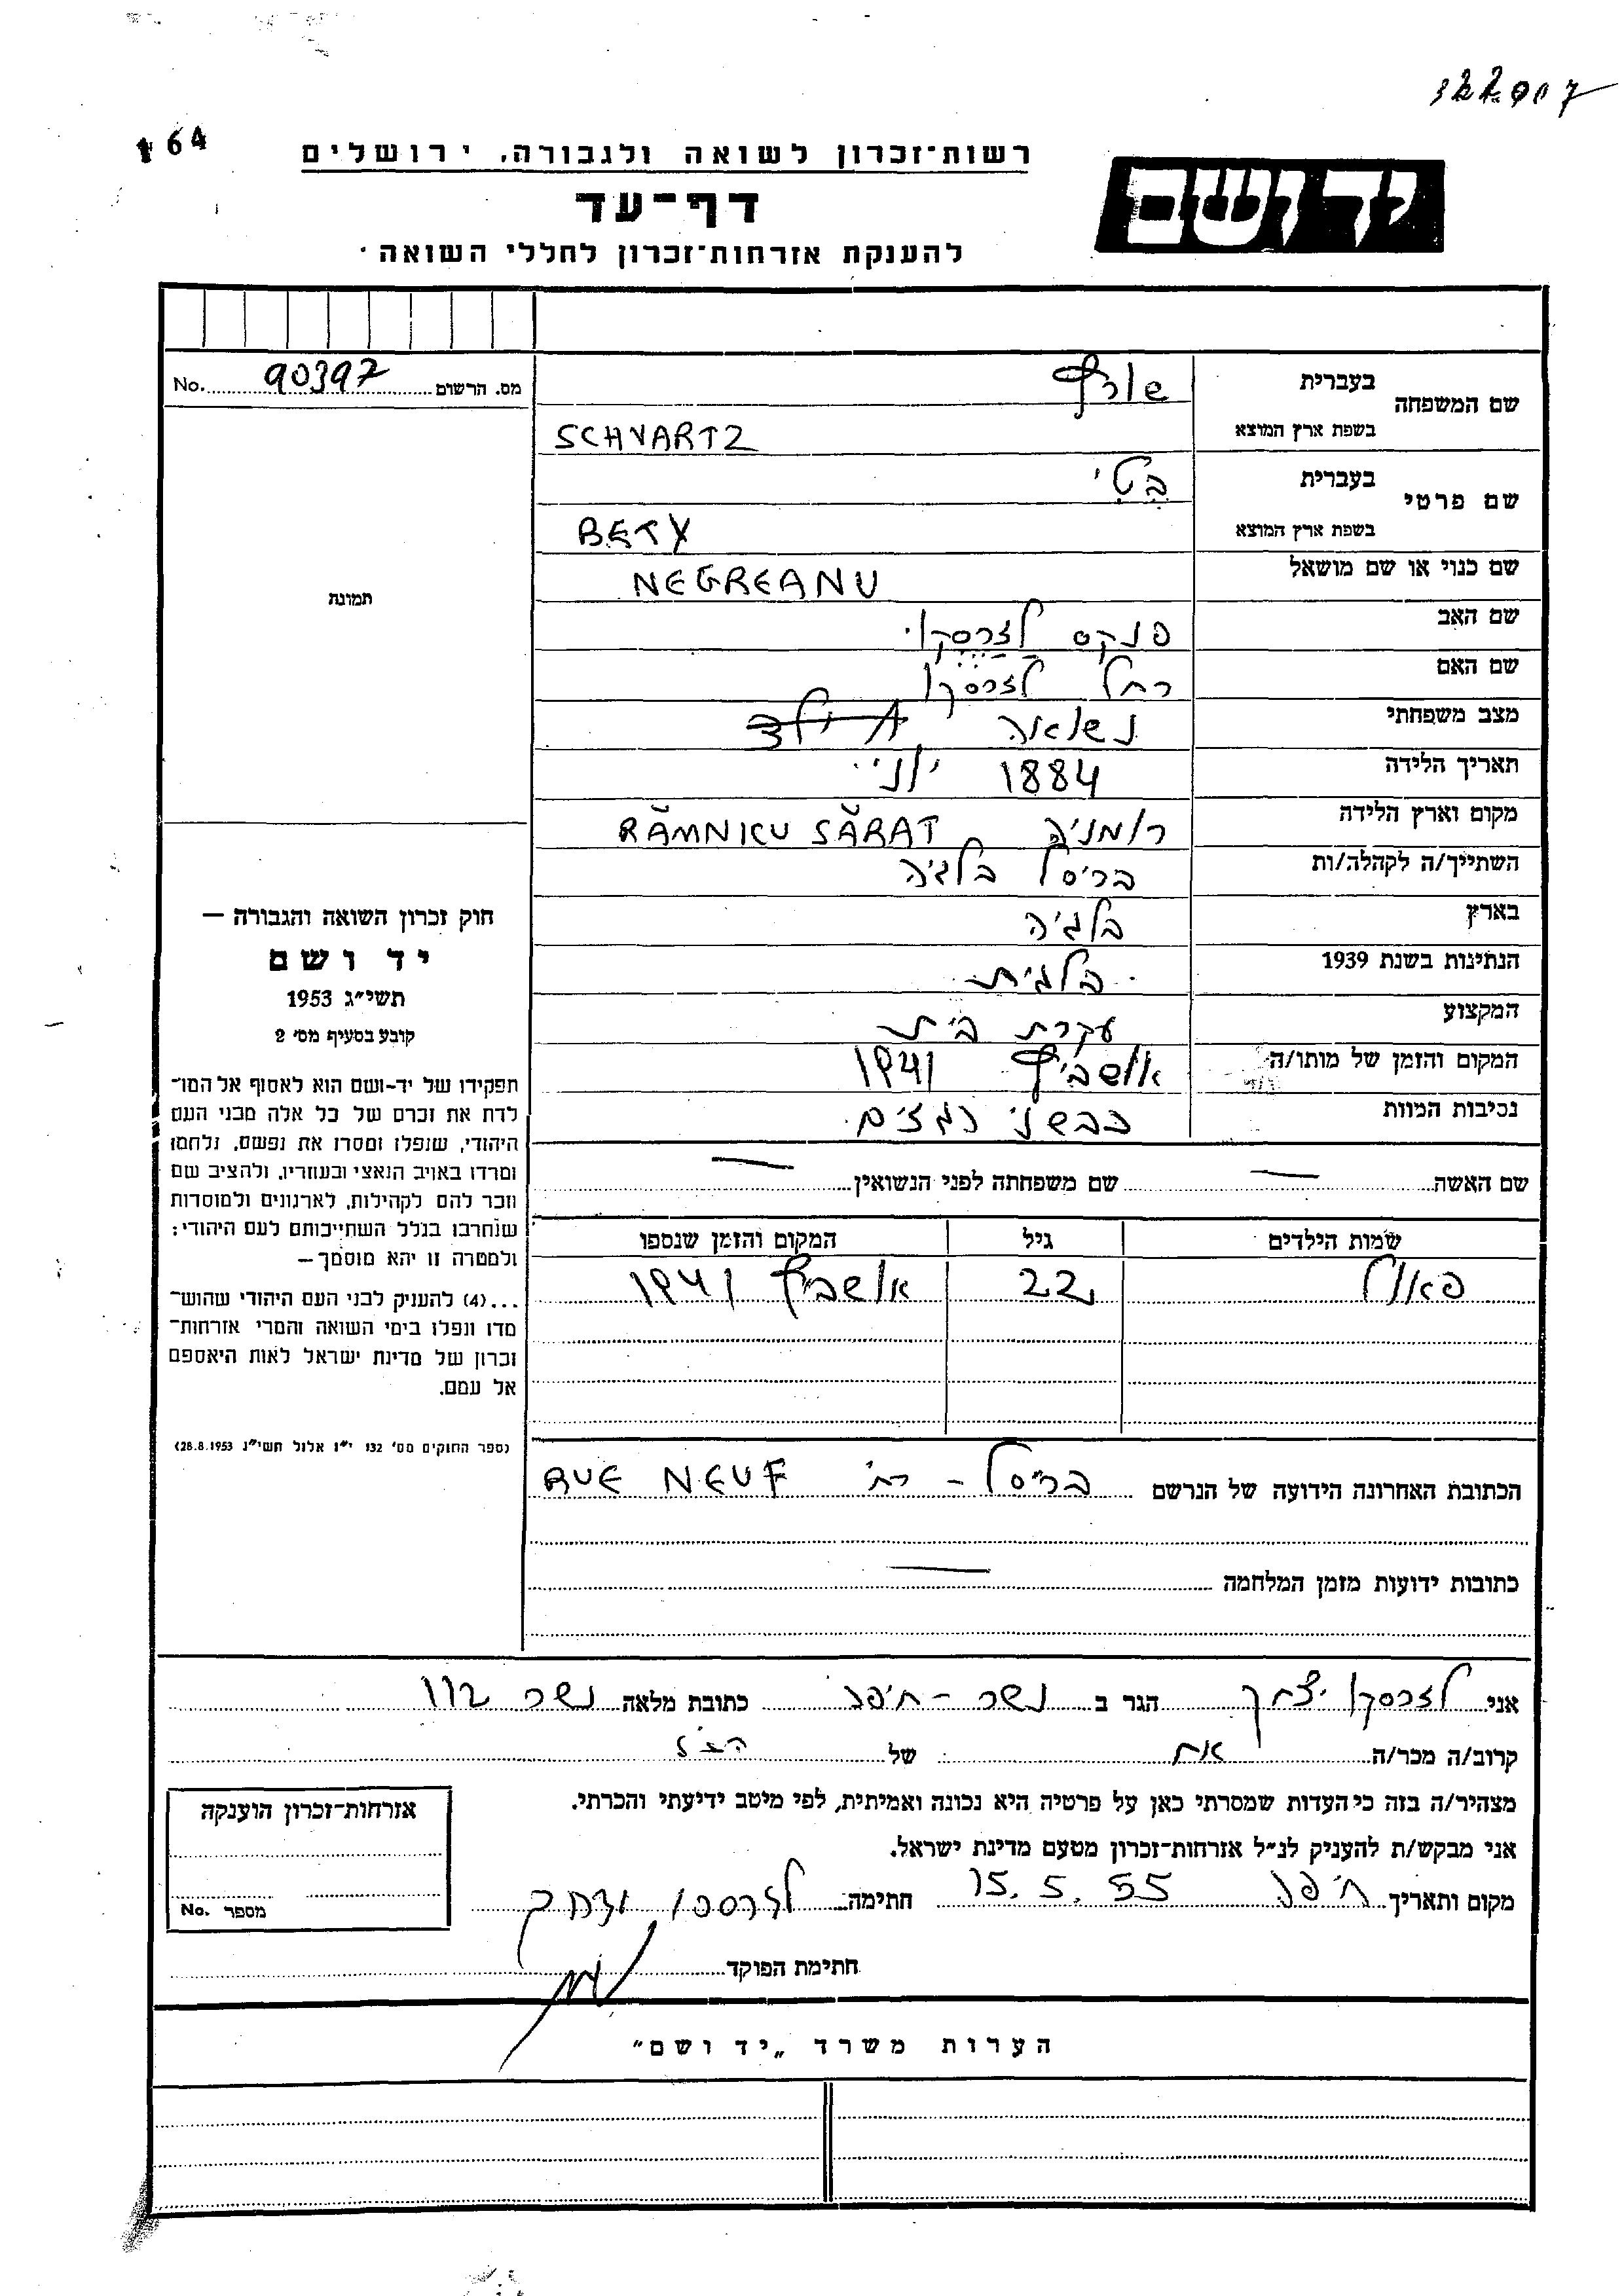 164
רשות־זכרון לשואה ולגבורה, ירושלים
יד ושם
דף־עד
להענקת אזרחות־זכרון לחללי השואה
מס. הרשום 90397 No.
שם המשפחה
בעברית שורץ
בשפת ארץ המוצא SCHVARTZ
שם פרטי
בעברית בטי
בשפת ארץ המוצא BETY
שם כנוי או שם מושאל NEGREANU
שם האב פנקס לזרסקו
שם האם רחל לזרסקו
מצב משפחתי נשואה
תאריך הלידה 1884 יוני
מקום וארץ הלידה רומניה RĂMNIKU SĂRAT
השתייך/ה לקהלה/ות בריסל בלגיה
בארץ בלגיה
הנתינות בשנת 1939 בלגית
המקצוע עקרת בית
המקום והזמן של מותו/ה אושביץ 1941
נסיבות המוות כבשני הגזים
שם האשה — שם משפחתה לפני הנשואין —
שמות הילדים גיל המקום והזמן שנספו
פאול 22 אושביץ 1941
הכתובת האחרונה הידועה של הנרשם בריסל – רח' RUE NEUF
כתובות ידועות מזמן המלחמה —
תמונה
חוק זכרון השואה והגבורה —
יד ושם
תשי״ג 1953
קובע בסעיף מס׳ 2
תפקידו של יד-ושם הוא לאסוף אל המו־
לדת את זכרם של כל אלה מבני העם
היהודי, שנפלו ומסרו את נפשם, נלחמו
ומרדו באויב הנאצי ובעוזריו, ולהציב שם
וזכר להם לקהילות, לארגונים ולמוסדות
שנחרבו בגלל השתייכותם לעם היהודי;
ולמטרה זו יהא מוסמך —
...(4) להעניק לבני העם היהודי שהוש־
מדו ונפלו בימי השואה והמרי אזרחות־
זכרון של מדינת ישראל לאות היאספם
אל עמם.
(ספר החוקים מס׳ 132 י״ז אלול תשי״ג 28.8.1953)
אני לזרסקו יצחק הגר ב נשר – חיפה כתובת מלאה נשר 112
קרוב/ה מכר/ה אח של הנ״ל
מצהיר/ה בזה כי העדות שמסרתי כאן על פרטיה היא נכונה ואמיתית, לפי מיטב ידיעתי והכרתי.
אני מבקש/ת להעניק לנ״ל אזרחות־זכרון מטעם מדינת ישראל.
מקום ותאריך חיפה 15.5.55 חתימה לזרסקו יצחק
חתימת הפוקד
אזרחות־זכרון הוענקה
מספר No.
הערות משרד „יד ושם״